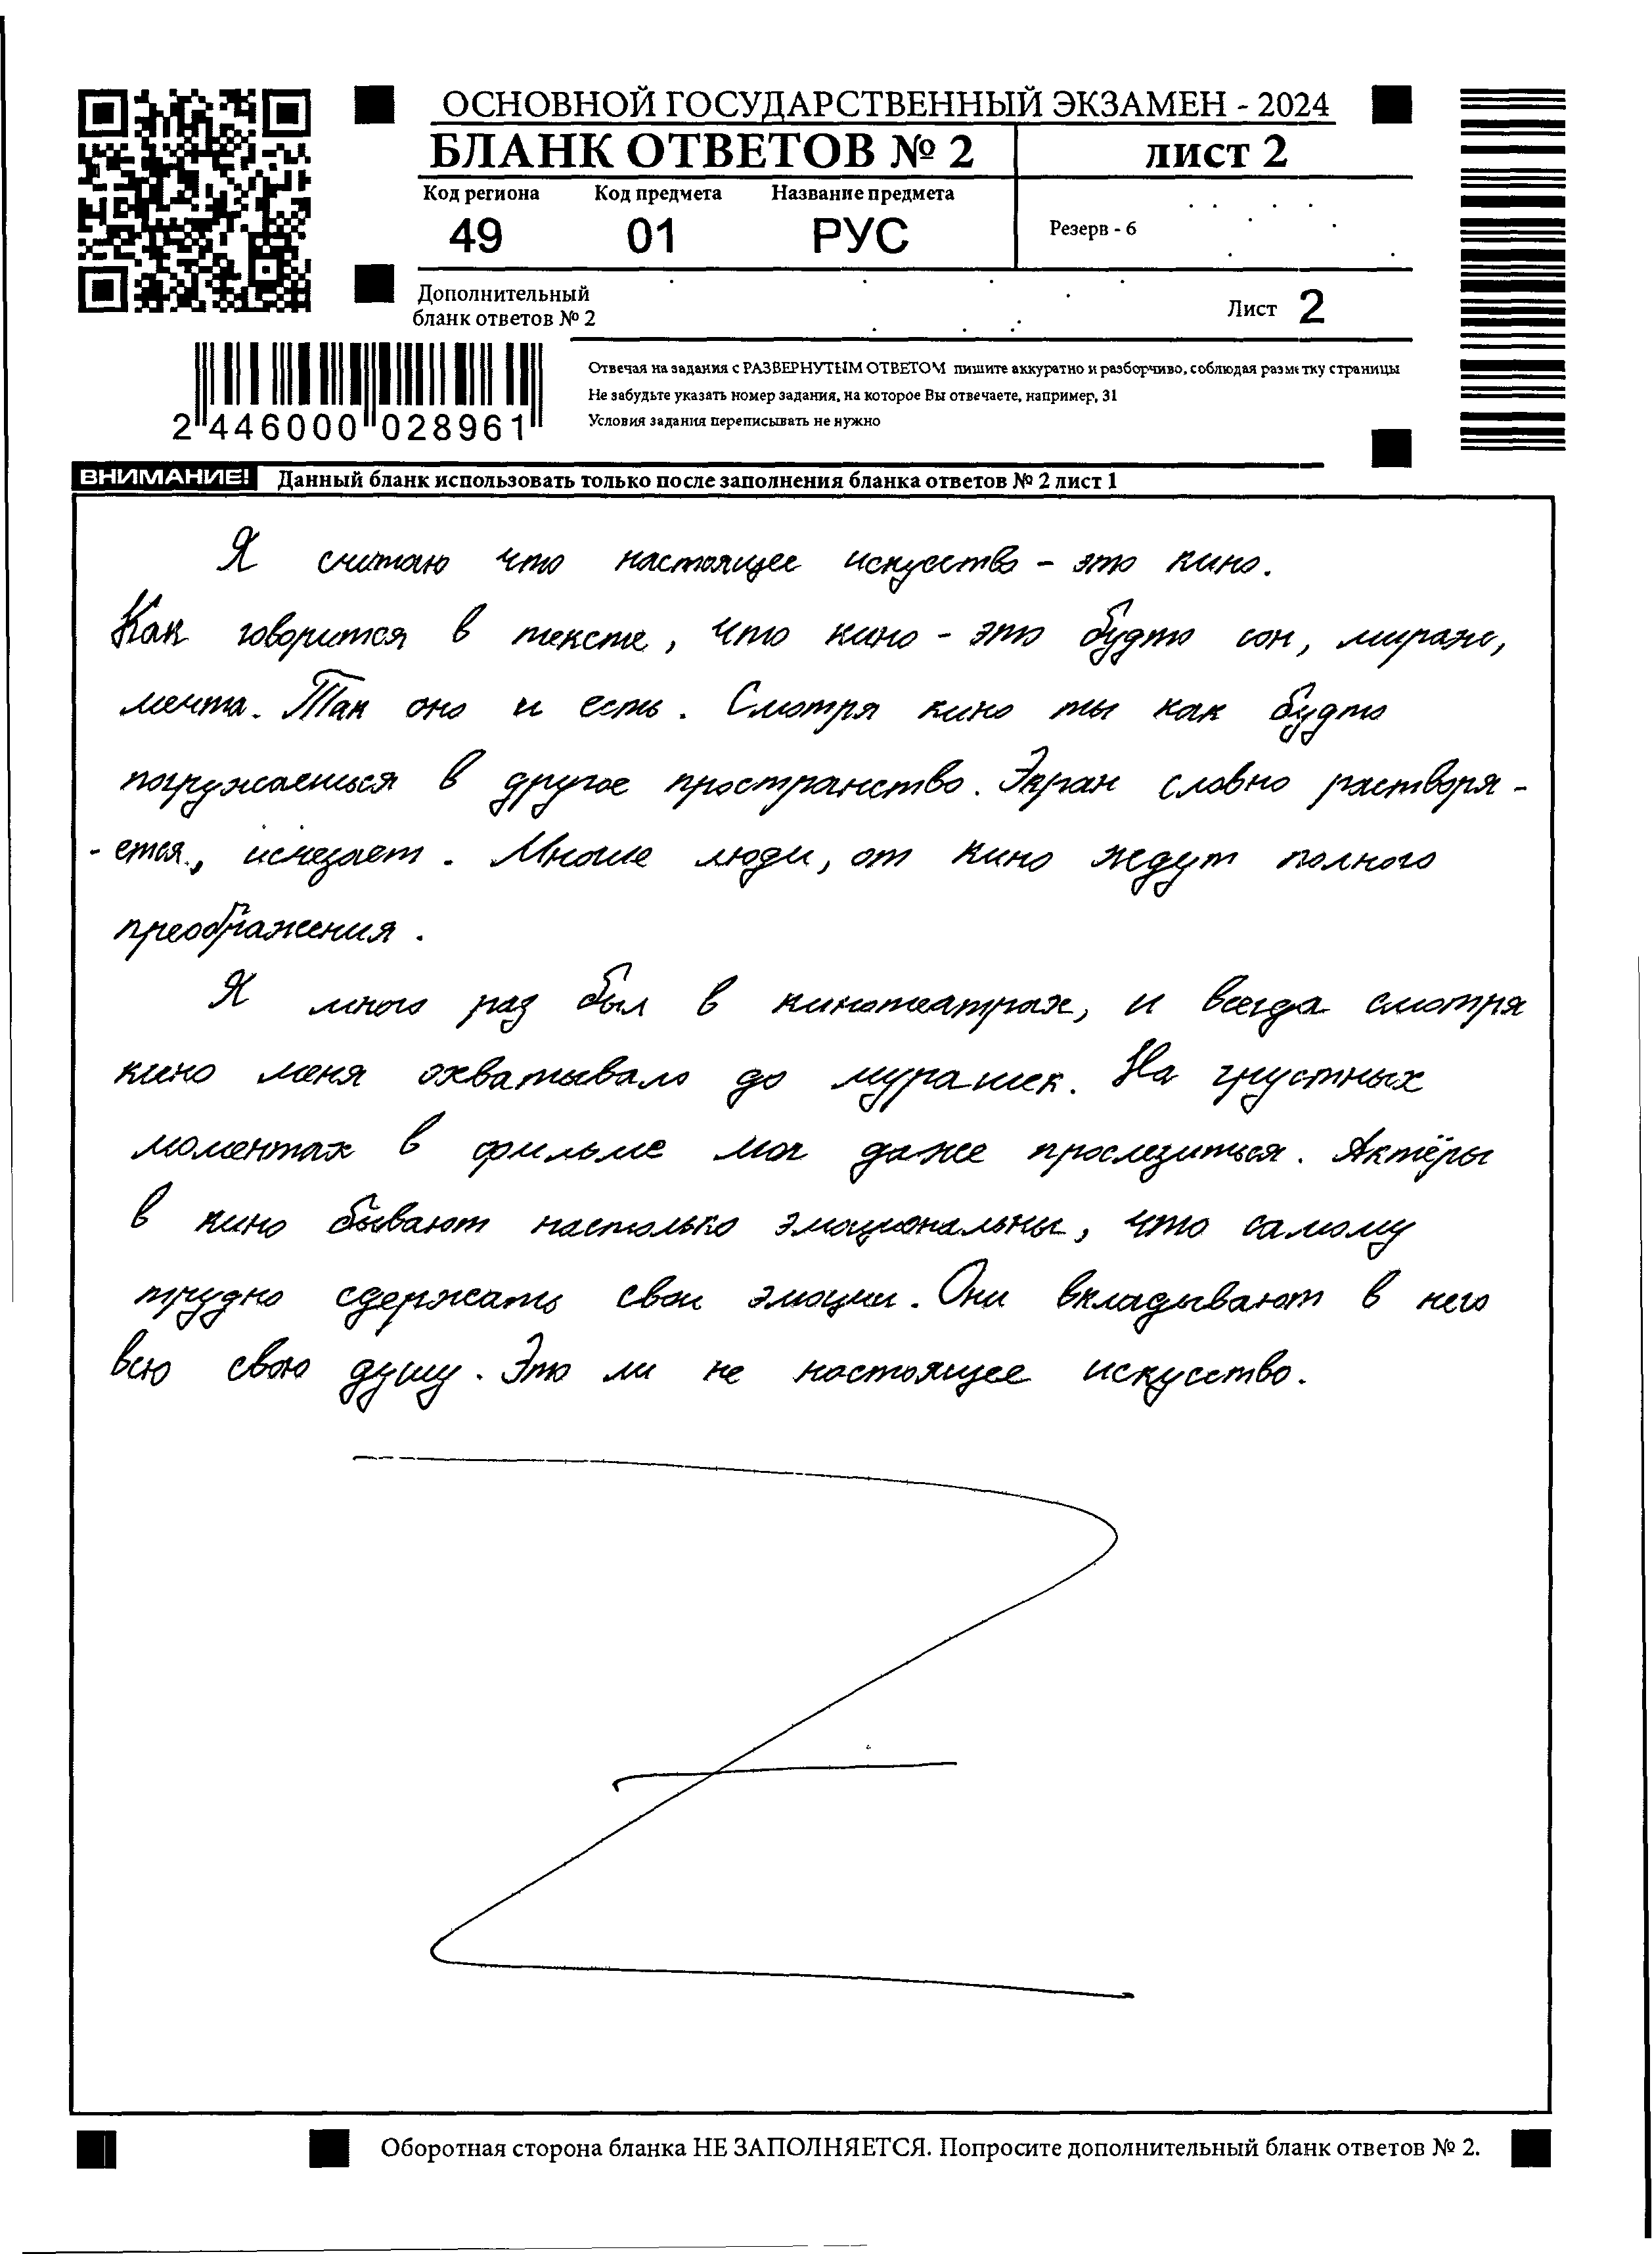 ОСНОВНОЙ ГОСУДАРСТВЕННЫЙ ЭКЗАМЕН - 2024
БЛАНК ОТВЕТОВ № 2
лист 2
Код региона Код предмета Название предмета
49 01 РУС
Резерв - 6
Дополнительный
бланк ответов № 2
Лист 2
Отвечая на задания с РАЗВЕРНУТЫМ ОТВЕТОМ пишите аккуратно и разборчиво, соблюдая разметку страницы
Не забудьте указать номер задания, на которое Вы отвечаете, например, 31
Условия задания переписывать не нужно
2 446000 028961
ВНИМАНИЕ! Данный бланк использовать только после заполнения бланка ответов № 2 лист 1
Я считаю что настоящее искусство - это кино.
Как говорится в тексте, что кино - это будто сон, мираж,
мечта. Так оно и есть. Смотря кино ты как будто
погружаешься в другое пространство. Экран словно растворя-
-ется, исчезает. Многие люди, от кино ждут полного
преображения.
Я много раз был в кинотеатрах, и всегда смотря
кино меня охватывало до мурашек. На грустных
моментах в фильме мог даже прослезиться. Актёры
в кино бывают настолько эмоциональны, что самому
трудно сдержать свои эмоции. Они вкладывают в него
всю свою душу. Это ли не настоящее искусство.
Оборотная сторона бланка НЕ ЗАПОЛНЯЕТСЯ. Попросите дополнительный бланк ответов № 2.